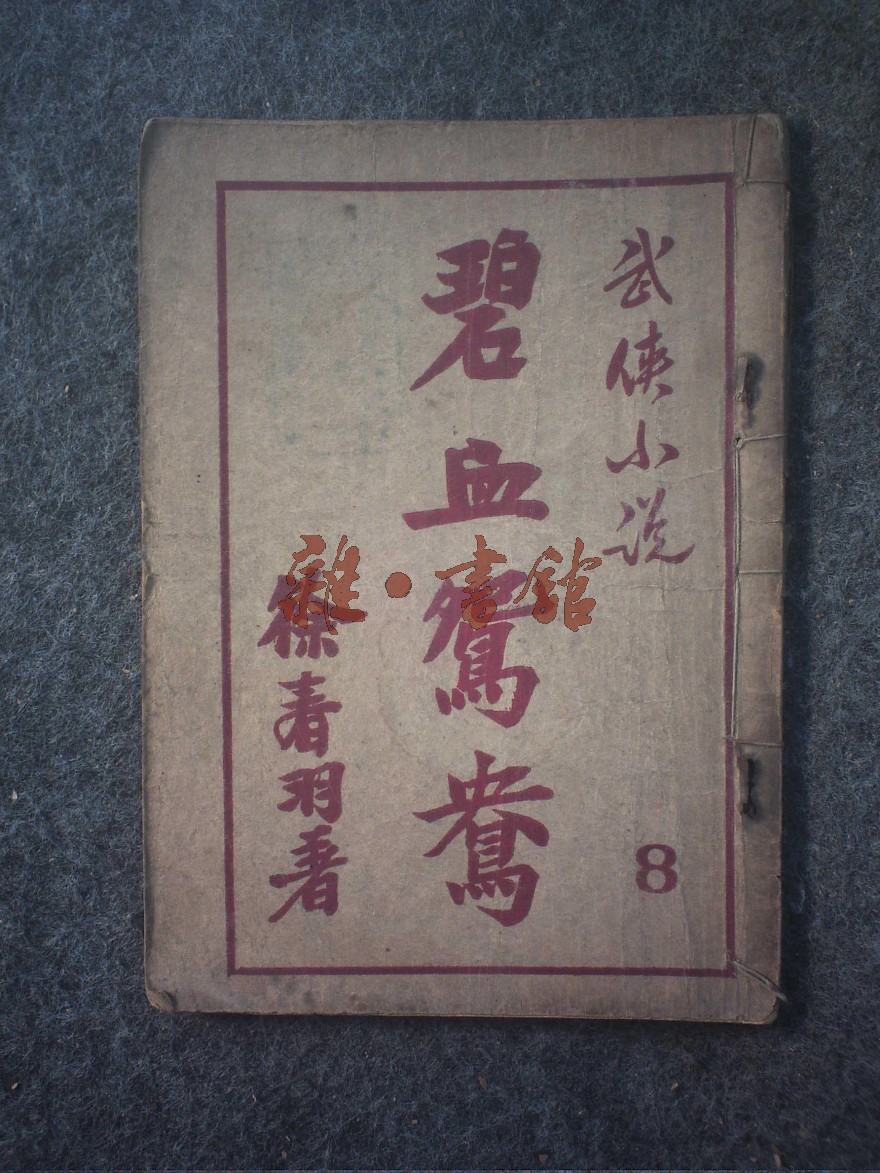 武俠小说
8
碧血鴛鴦
徐春羽著
雜·書館